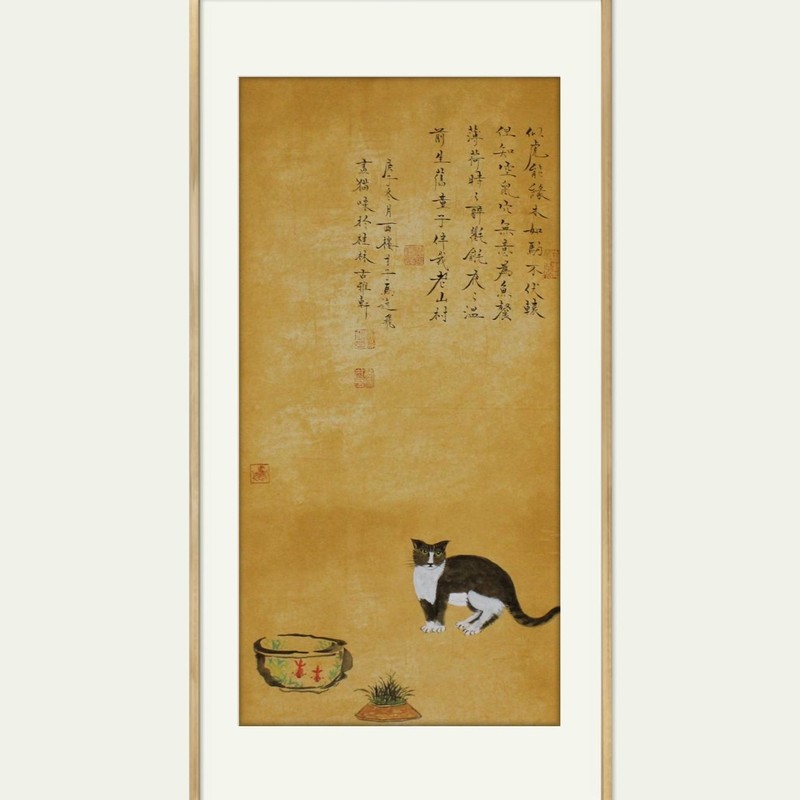 似虎能緣木如駒不伏轅
但知空鼠穴無意為魚餐
薄荷時〻醉氍毹夜〻溫
前生舊童子伴我老山村
庚子 月百樓
畫貓 於桂林古雅軒